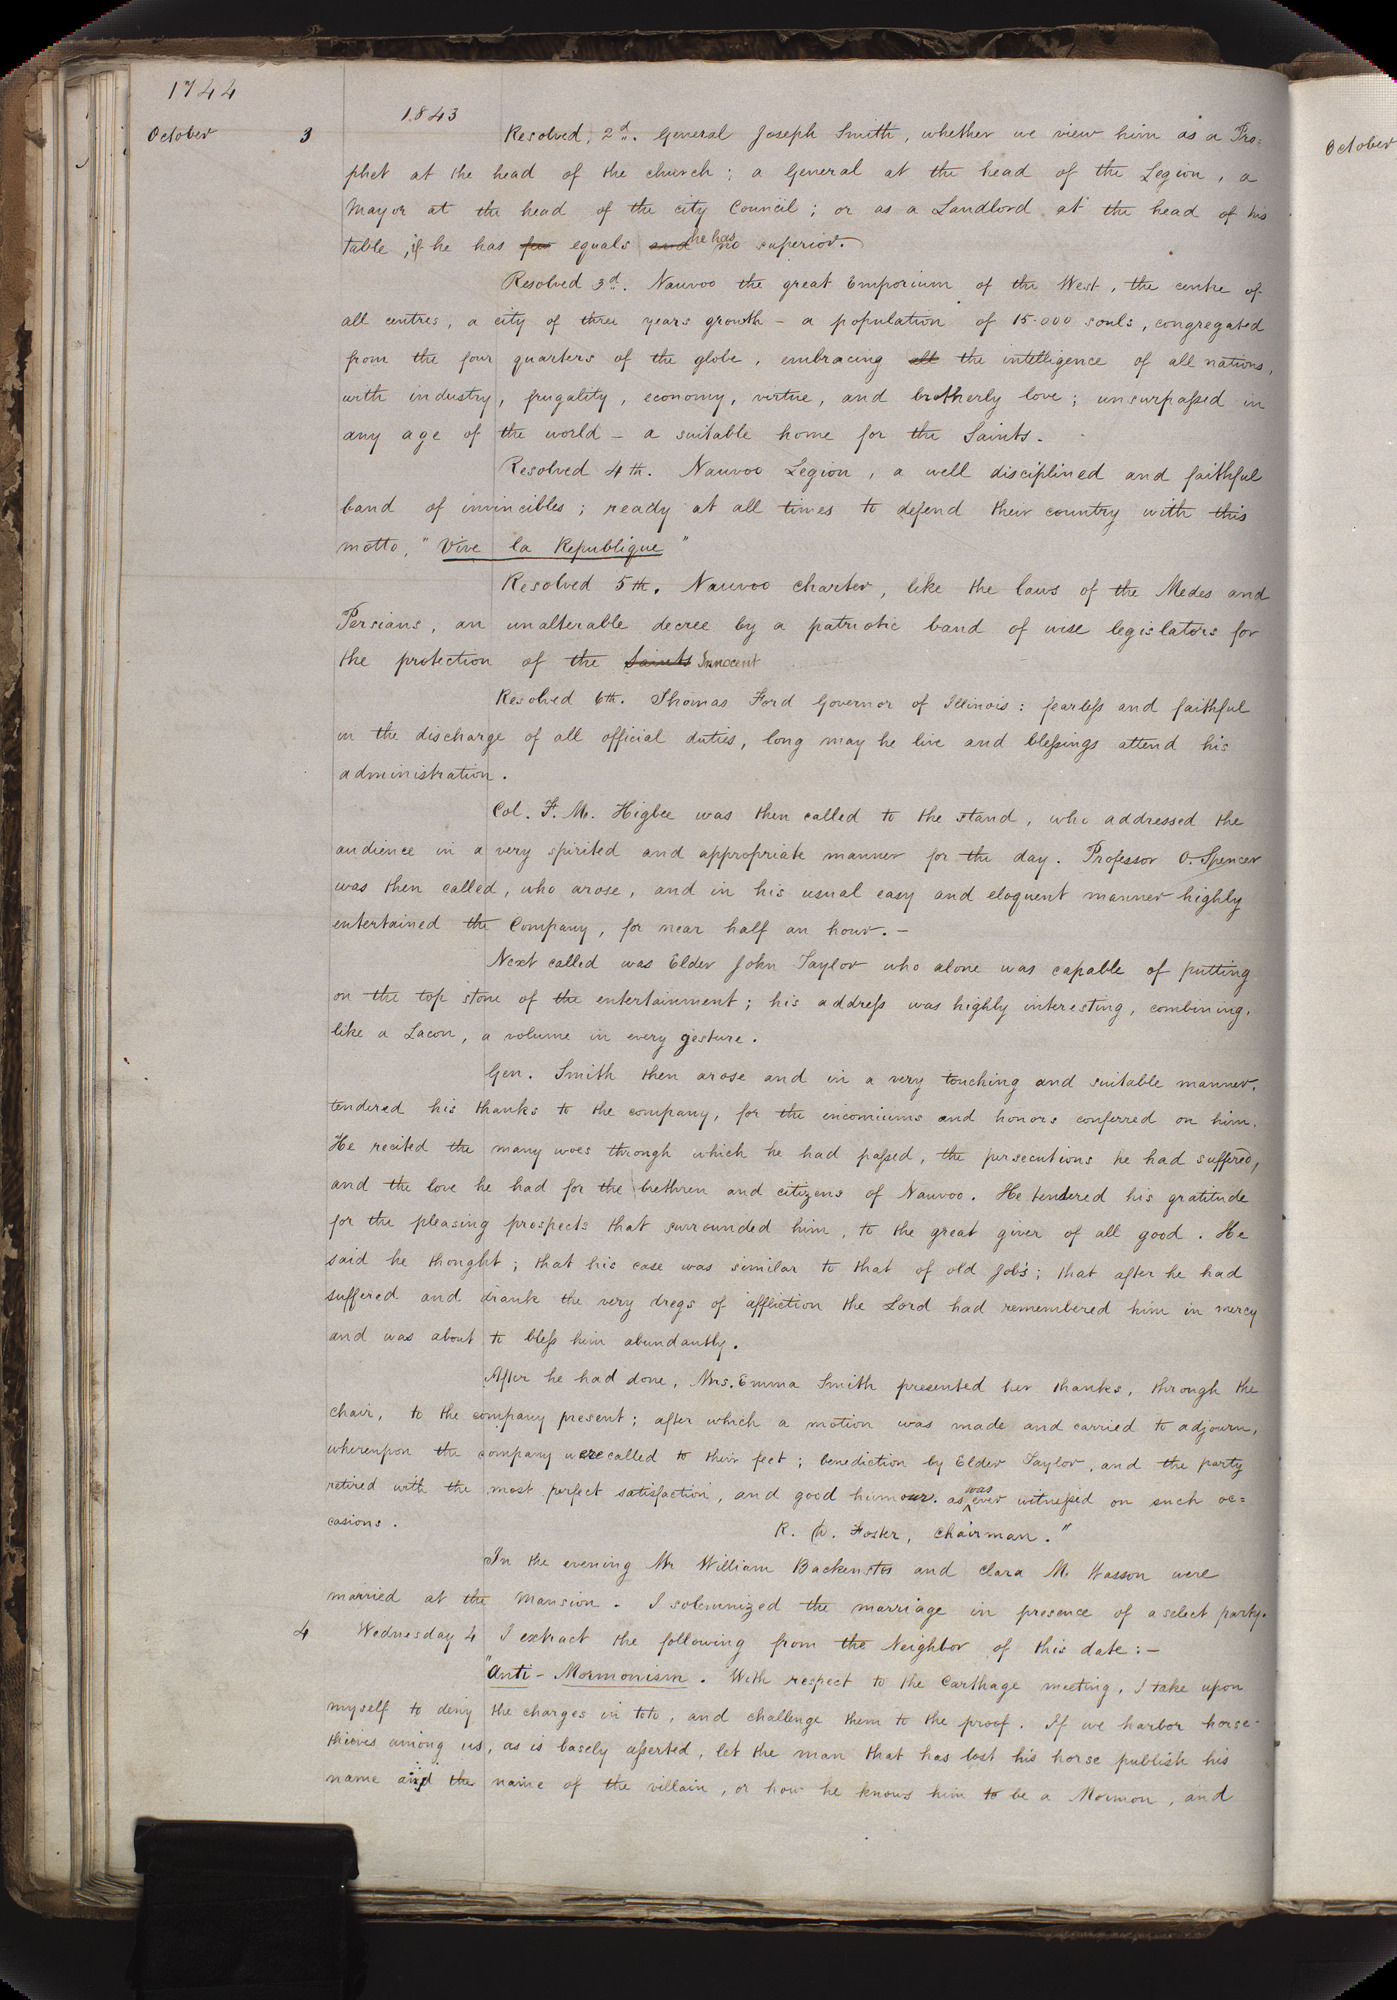 1744
1843
October 3 Resolved, 2d. General Joseph Smith, whether we view him as a Pro=
phet at the head of the church; a General at the head of the Legion, a
Mayor at the head of the city Council; or as a Landlord at the head of his
table, if he has few equals and he has no superior.
Resolved 3d. Nauvoo the great Emporium of the West, the centre of
all centres, a city of three years growth – a population of 15.000 souls, congregated
from the four quarters of the globe, embracing all the intelligence of all nations,
with industry, frugality, economy, virtue, and brotherly love; unsurpassed in
any age of the world – a suitable home for the Saints.
Resolved 4th. Nauvoo Legion, a well disciplined and faithful
band of invincibles; ready at all times to defend their country with this
motto, "Vive la Republique"
Resolved 5th. Nauvoo charter, like the laws of the Medes and
Persians, an unalterable decree by a patriotic band of wise legislators for
the protection of the Saints Innocent
Resolved 6th. Thomas Ford Governor of Illinois: fearless and faithful
in the discharge of all official duties, long may he live and blessings attend his
administration.
Col. F. M. Higbee was then called to the stand, who addressed the
audience in a very spirited and appropriate manner for the day. Professor O. Spencer
was then called, who arose, and in his usual easy and eloquent manner highly
entertained the Company, for near half an hour. –
Next called was Elder John Taylor who alone was capable of putting
on the top stone of the entertainment; his address was highly interesting, combining,
like a Lacon, a volume in every gesture.
Gen. Smith then arose and in a very touching and suitable manner,
tendered his thanks to the company, for the encomiums and honors conferred on him.
He recited the many woes through which he had passed, the persecutions he had suffered,
and the love he had for the brethren and citizens of Nauvoo. He tendered his gratitude
for the pleasing prospects that surrounded him, to the great giver of all good. He
said he thought; that his case was similar to that of old Job's; that after he had
suffered and drank the very dregs of affliction the Lord had remembered him in mercy
and was about to bless him abundantly.
After he had done, Mrs. Emma Smith presented her thanks, through the
chair, to the company present; after which a motion was made and carried to adjourn,
whereupon the company were called to their feet; benediction by Elder Taylor, and the party
retired with the most perfect satisfaction, and good humour. as was ever witnessed on such oc=
casions.
R. D. Foster, Chairman."
In the evening Mr William Backenstos and Clara M. Wasson were
married at the Mansion. I solemnized the marriage in presence of a select party.
4 Wednesday 4 I extract the following from the Neighbor of this date:–
"Anti-Mormonism. With respect to the Carthage meeting, I take upon
myself to deny the charges in toto, and challenge them to the proof. If we harbor horse-
thieves among us, as is basely asserted, let the man that has lost his horse publish his
name and the name of the villain, or how he knows him to be a Mormon, and
October